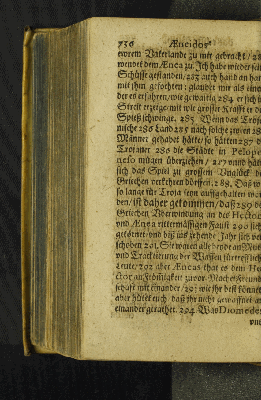 736 Æneidos
ewrem Vaterlande zu mir gebracht / 282
wendet dem Ænea zu. Ich habe wieder sein
Schüsse gestanden / 283 auch hand an hand
mit ihm gefochten: glaubet mir als einem
der es erfahren / wie gewaltig 284 er sich im
Streit erzeige mit was grosser Krafft er den
Spieß schwinge. 285. Wenn das Troja-
nische 286 Land 285 noch solche zween 286
Männer gehabet hätte / so hätten 287 die
Trojaner 286 die Städte in Pelopo-
neso mügen überziehen / 287 und hätte
sich das Spiel zu grossem Unglück der
Griechen verkehren dörffen. 288. Das wir
so lange für Troja seyn auffgehalten wor-
den / ist daher gekommen / daß 289 der
Griechen Überwindung an des Hectors
und Ænea rittermässigen Faust 290 sich
gestösset / und biß ins zehende Jahr sich ver-
schoben 291. Sie waren alle beyde an Muht
und Tractierung der Waffen fürtreffliche
Leute / 292 aber Æneas that es dem He-
ctor an frömigkeit zuvor. Machet Freund-
schafft mit einander / 293 wie ihr best könnet /
aber hütet euch / daß ihr nicht gewaffnet an
einander gerahtet. 294 Was Diomedes
vnd